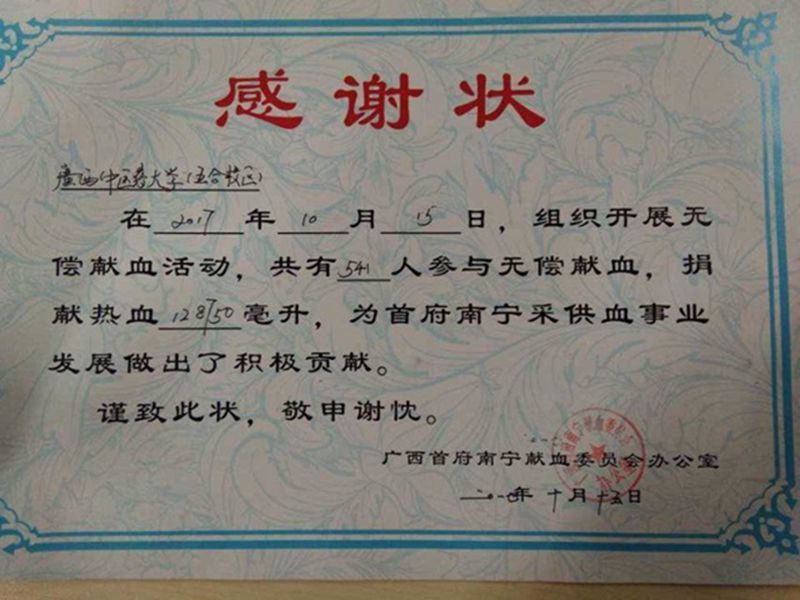 感谢状
广西中医药大学(五合校区)
在 2017 年 10 月 15 日，组织开展无
偿献血活动，共有 541 人参与无偿献血，捐
献热血 128750 毫升，为首府南宁采供血事业
发展做出了积极贡献。
谨致此状，敬申谢忱。
广西首府南宁献血委员会办公室
年 十月十五日